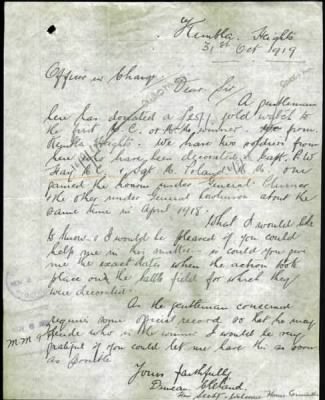 Kembla Heights
31st Oct 1919
Officer in Charge
Dear Sir
A gentleman
here has donated a gold watch to
the first M.C. or M.M. winner from
Kembla Heights. We have two soldiers from
here who have been decorated Capt. P.W.
Gay M.C. & Sgt M. Poland M.M. one
gained the honour under General
& the other under General about the
same time in April 1918.
What I would like
to know & I would be pleased if you could
help me in the matter. could you give
me the exact date when the action took
place on the battle field for which they
were decorated
As the gentleman concerned
requires some official record so that he may
who is the winner I would be very
grateful if you could let me have this as soon
as possible
Yours faithfully
Duncan
Hon Secty Welcome Home Committee